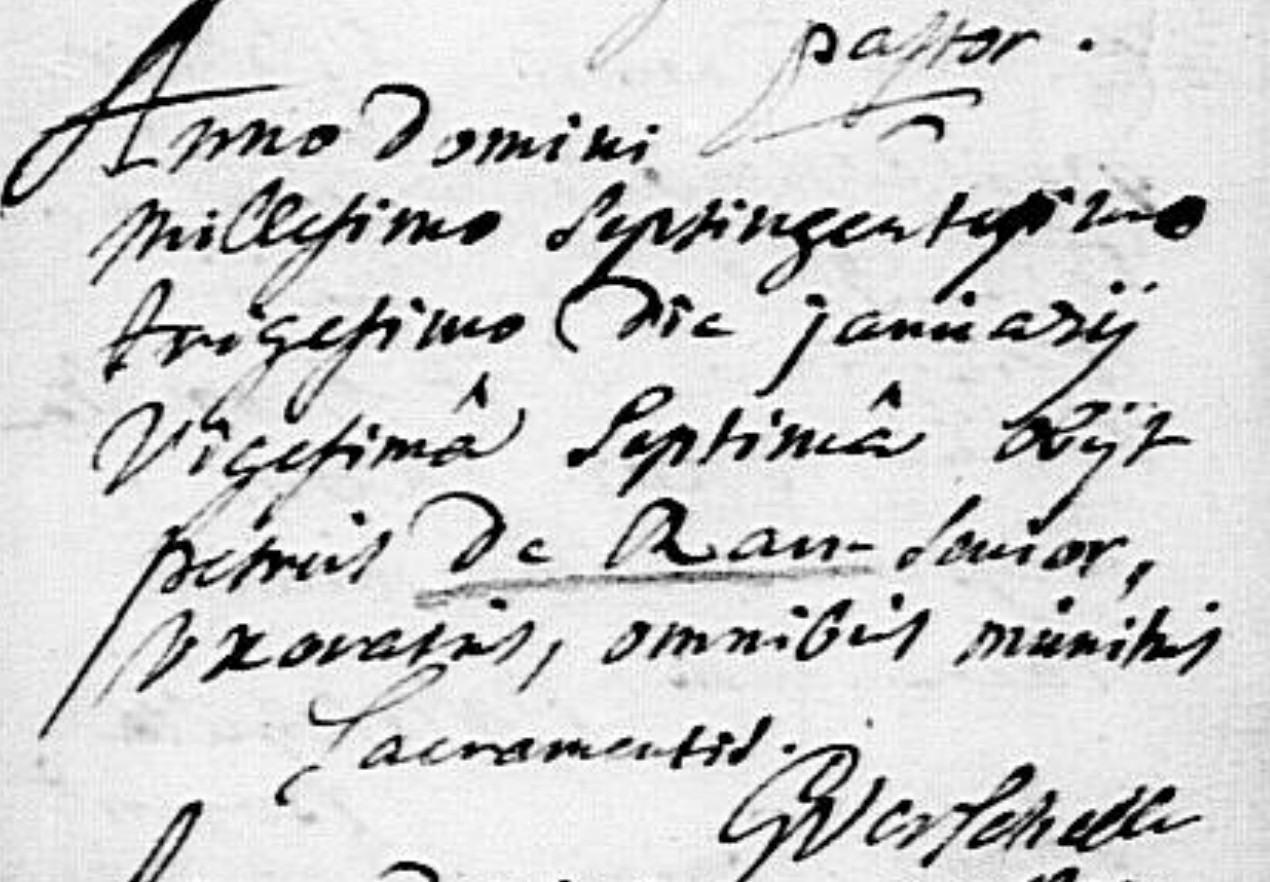 pastor.
Anno Domini
millesimo septingentesimo
trigesimo Die januarij
Vigesimâ septimâ obijt
petrus De Ram senior,
uxoratus, omnibus munitus
Sacramentis.